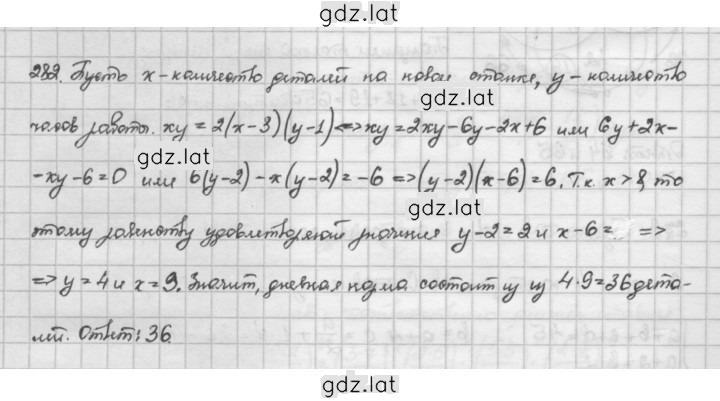 gdz.lat
282. Пусть x - количество деталей на новом станке, y - количество
gdz.lat
часов работы. xy = 2(x-3)(y-1) <=> xy = 2xy-6y-2x+6 или 6y+2x-
gdz.lat
-xy-6=0 или 6(y-2)-x(y-2)=-6 => (y-2)(x-6)=6. Т.к. x>8, то
gdz.lat
этому равенству удовлетворяют значения y-2=2 и x-6= =>
=> y=4 и x=9. Значит, дневная норма состоит из 4·9=36 дета-
лей. Ответ: 36.
gdz.lat